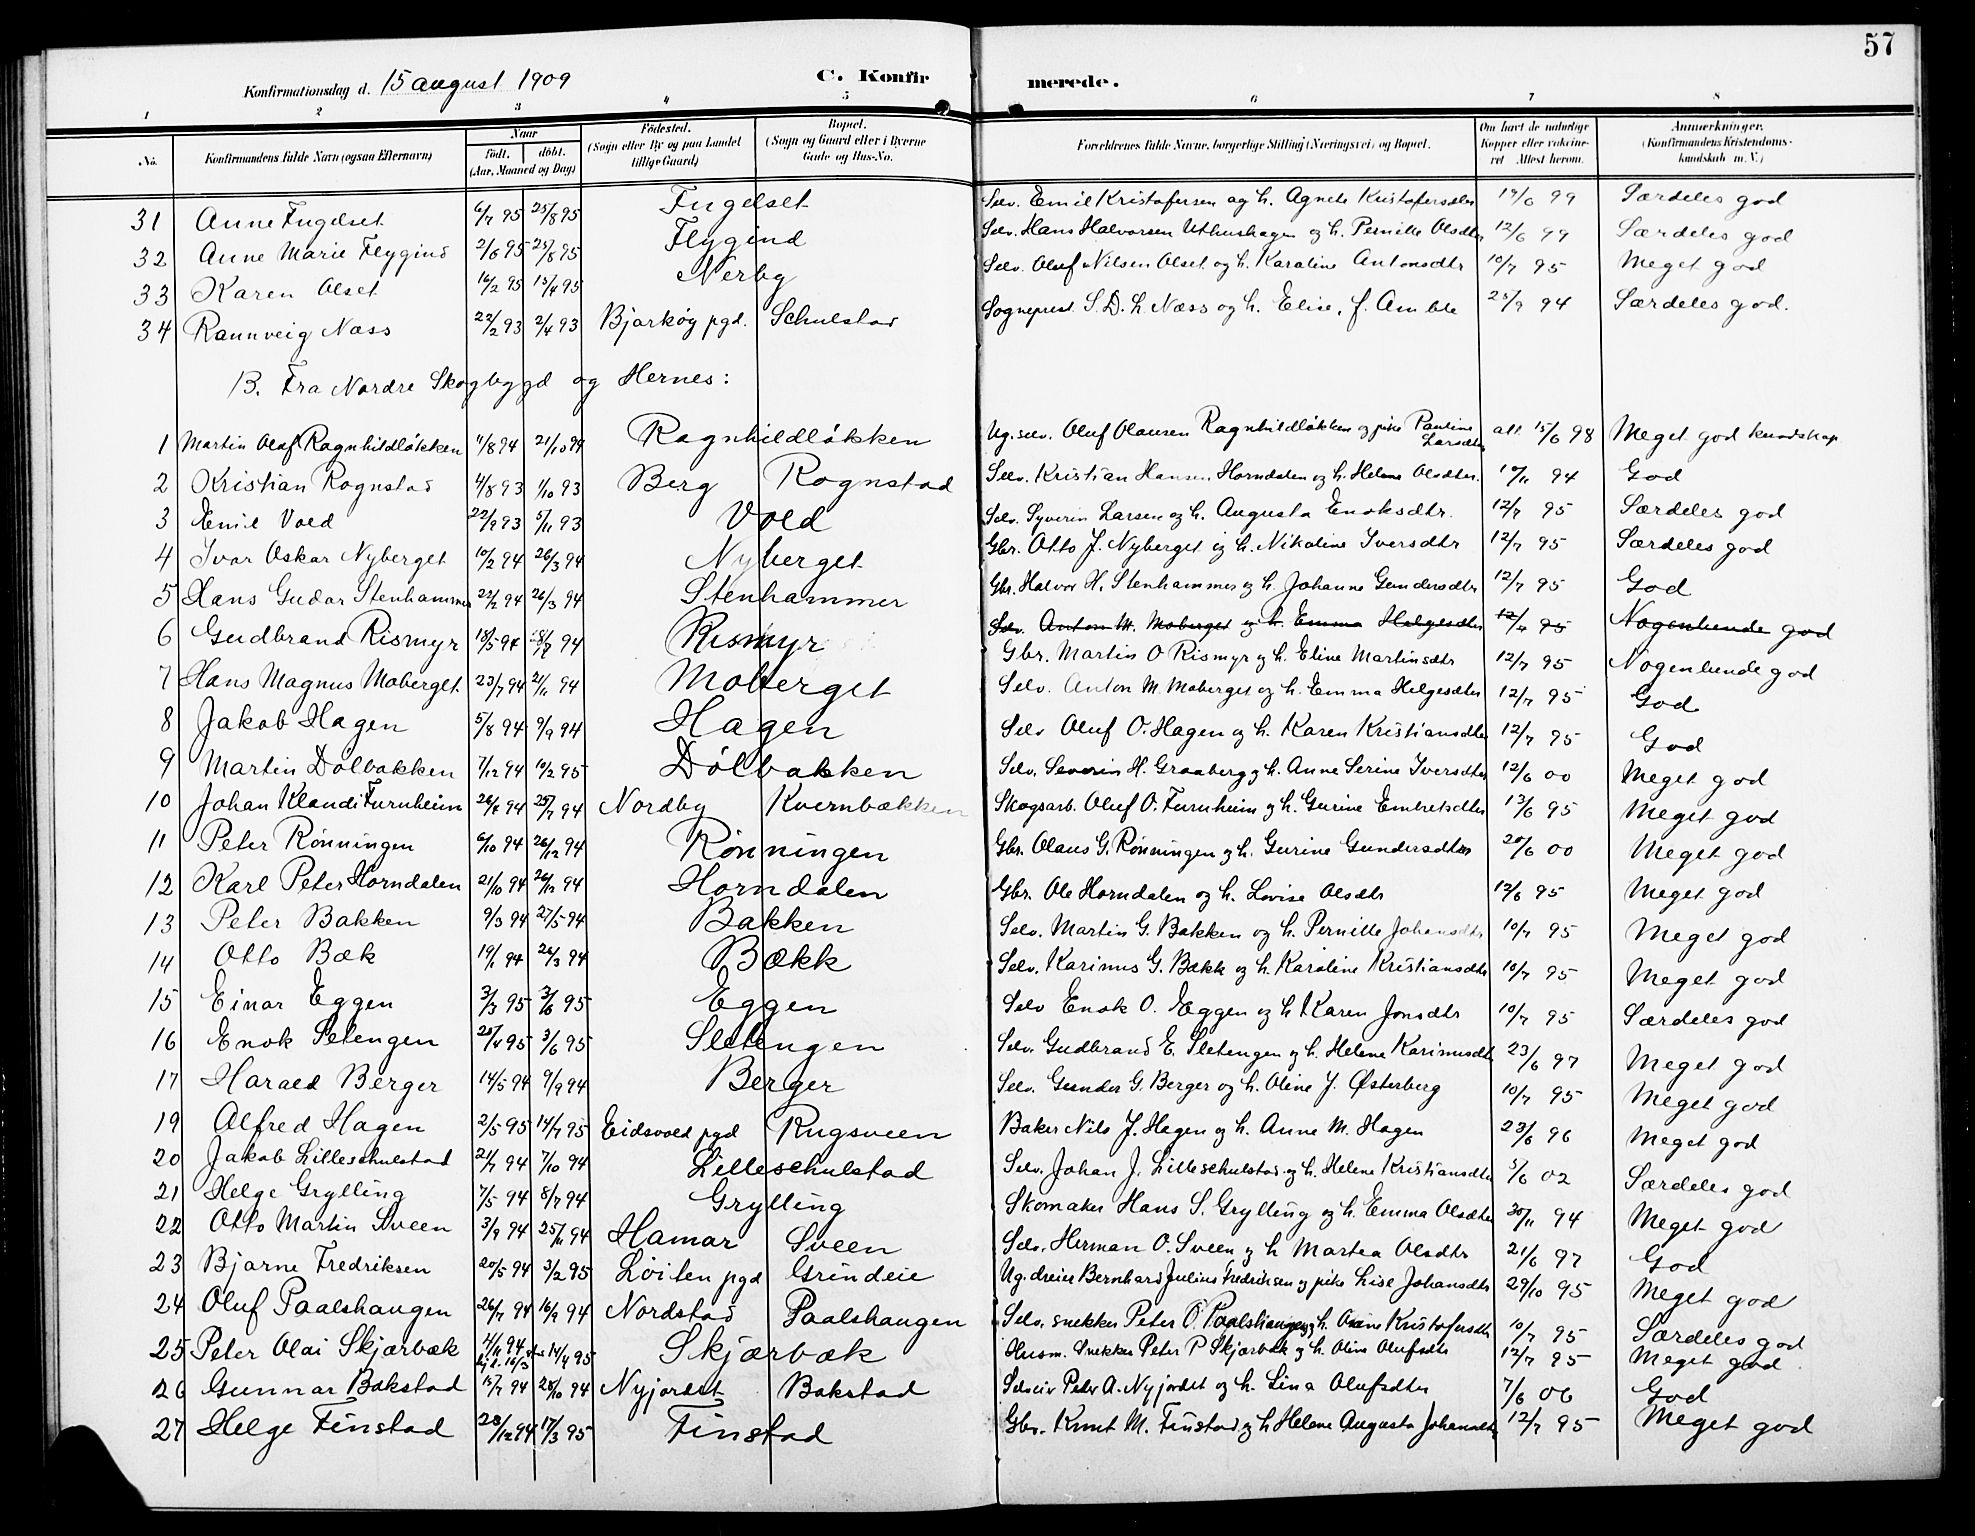 57
Konfirmationsdag d. 15 august 1909 C. Konfirmerede.
1 2 3 4 5 6 7 8
No. Konfirmandens fulde Navn (ogsaa Efternavn) Naar født. døbt. (Aar, Maaned og Dag) Fødested. (Sogn eller By og paa Landet tillige Gaard) Bopæl. (Sogn og Gaard eller i Byerne Gade og Hus-No. Forældrenes fulde Navne, borgerlige Stilling (Næringsvei) og Bopæl. Om havt de naturlige Kopper eller vakcineret. Attest herom. Anmerkninger. (Konfirmandens Kristendomskundskab m. V.)
31 Anne Fugelset 6/7 95 25/8 95 Fugelset Selv. Emil Kristofersen og h. Agnete Kristofersdtr 19/6 99 Særdeles god
32 Anne Marie Flygind 2/6 95 25/8 95 Flygind Selv. Hans Halvorsen Uthushagen og h. Pernille Olsdtr 12/6 99 Særdeles god
33 Karen Olset 16/2 95 15/4 95 Nerby Selv. Oluf Nilsen Olset og h. Karoline Antonsdtr 10/7 95 Meget god
34 Rannveig Næss 22/2 93 2/4 93 Bjarkøy pgd. Schulstad Sogneprest S. D. L. Næss og h. Elise, f. Amble 25/9 94 Særdeles god.
B. Fra Nordre Skogbygd og Hernes:
1 Martin Olaf Ragnhildløkken 11/8 94 21/10 94 Ragnhildløkken Ug. selv. Oluf Olausen Ragnhildløkken og pike Pauline Larsdtr att. 15/6 98 Meget god kundskap
2 Kristian Rognstad 4/8 93 1/10 93 Berg Rognstad Selv. Kristian Hansen Horndalen og h. Helene Olsdtr. 10/11 94 God
3 Emil Vold 22/9 93 5/11 93 Vold Selv. Syverin Larsen og h. Augusta Enoksdtr. 12/7 95 Særdeles god
4 Ivar Oskar Nyberget 10/2 94 26/3 94 Nyberget Gbr. Otto J. Nyberget og h. Nikoline Iversdtr 12/7 95 Særdeles god
5 Hans Gudar Stenhammer 22/2 94 26/3 94 Stenhammer Gbr. Halvor H. Stenhammer og h. Johanne Gundersdtr 12/7 95 God
6 Gudbrand Rismyr 18/5 94 8/7 94 Rismyr Selv. Anton M. Moberget og h. Emma Helgesdtr 12/7 95 Nogenlunde god
Gbr. Martin O Rismyr og h. Eline Martinsdtr 12/7 95 Nogenlunde god
7 Hans Magnus Moberget 23/7 94 2/11 94 Moberget Selv. Anton M. Moberget og h. Emma Helgesdtr 12/7 95 God
8 Jakob Hagen 5/8 94 9/9 94 Hagen Selv Oluf O. Hagen og h. Karen Kristiansdtr 12/7 95 God
9 Martin Dølbakken 7/12 94 10/2 95 Dølbakken Selv. Severin H. Graaberg og h. Anne Serine Iversdtr 12/6 00 Meget god
10 Johan Klaudi Furuheim 94 25/7 94 Nordby Kvernbækken Skogsarb. Oluf O. Furuheim og h. Gurine Embretsdtr 13/6 95 Meget god
11 Peter Rønningen 6/10 94 26/12 94 Rønningen Gbr. Olaus G. Rønningen og h. Gurine Gundersdtr 20/6 00 Meget god
12 Karl Peter Horndalen 21/10 94 26/12 94 Horndalen Gbr. Ole Horndalen og h. Lovise Olsdtr 12/6 95 Meget god
13 Peter Bakken 9/3 94 27/5 94 Bakken Selv. Martin G. Bakken og h. Pernille Johansdtr 10/7 95 Meget god
14 Otto Bæk 14/1 94 26/3 94 Bækk Selv. Karinus G. Bækk og h. Karoline Kristiansdtr 10/7 95 Meget god
15 Einar Eggen 3/3 95 3/6 95 Eggen Selv Enok O. Eggen og h Karen Jonsdtr 10/7 95 Særdeles god
16 Enok Sletengen 25/4 95 3/6 95 Sletengen Selv. Gudbrand E. Sletengen og h. Helene Karinusdtr 23/6 97 Meget god
17 Harald Berger 14/5 94 9/9 94 Berger Selv. Gunder G. Berger og h. Oline J. Østerberg 10/7 95 Meget god
19 Alfred Hagen 2/5 95 14/7 95 Eidsvold pgd Rugsveen Baker Nils J. Hagen og h. Anne M. Hagen 23/6 96 Meget god
20 Jakob Lilleschulstad 21/7 94 7/10 94 Lilleschulstad Selv. Johan J. Lilleschulstad og h. Helene Kristiansdtr 5/6 02 Særdeles god
21 Helge Grylling 7/5 94 8/7 94 Grylling Skomaker Hans S. Grylling og h. Emma Olsdtr 30/11 94 Meget god
22 Otto Martin Sveen 3/9 94 25/11 94 Hamar Sveen Selv. Herman O. Sveen og h Martea Olsdtr 21/6 97 God
23 Bjarne Fredriksen 20/5 94 3/2 95 Løiten pgd Grindeie Ug. dreier Bernhard Julius Fredriksen og pike Lise Johansdtr 29/10 95 Meget god
24 Oluf Paalshaugen 26/7 94 16/9 94 Nordstad Paalshaugen Selv. snekker Peter O. Paalshaugen og h. Kristofersdtr 10/7 95 Særdeles god
25 Peter Olai Skjærbæk 4/11 94 14/4 95 Skjærbæk Husm. Snekker Peter P Skjærbæk og h. Oline Olufsdtr 12/7 95 Meget god
26 Gunnar Bakstad 15/7 94 28/10 94 Nyjordet Bakstad Selveier Peder A. Nyjordet og h. Lina Olufsdtr 7/6 06 God
27 Helge Finstad 28/12 94 17/3 95 Finstad Gbr. Knut M. Finstad og h Helene Augusta Johansdtr 12/7 95 Meget god